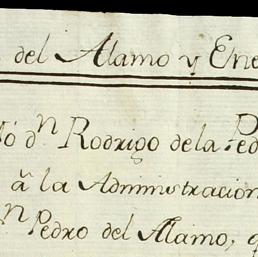 del Alamo y Ene
dn Rodrigo de la Ped
â la Administracion
n Pedro del Alamo, q